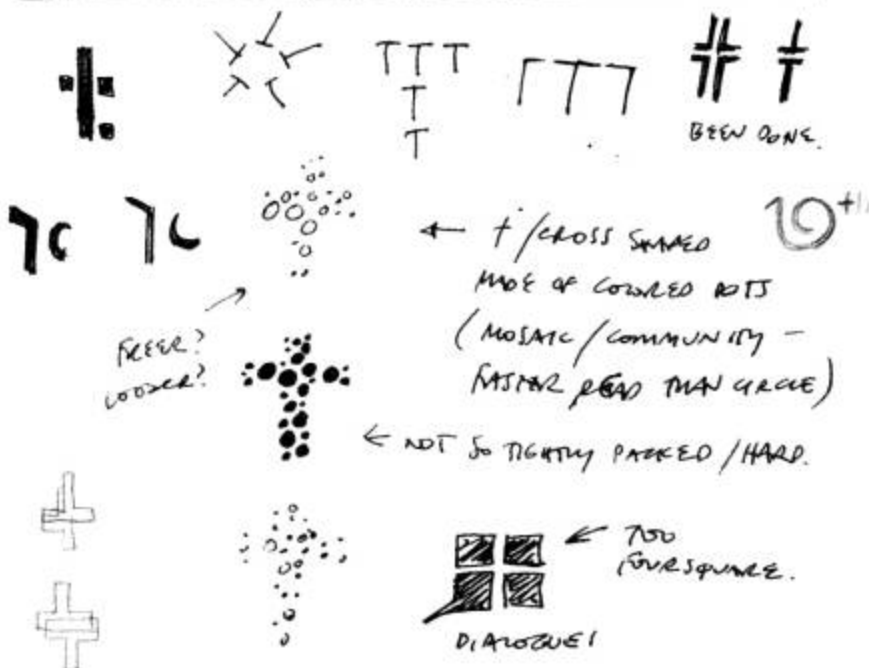 BEEN DONE.
← † / CROSS SHAPED
MADE OF COLORED DOTS
(MOSAIC / COMMUNITY -
FASTER READ THAN CIRCLE)
FREER?
LOOSER?
← NOT SO TIGHTLY PACKED / HARD.
← TOO
FOURSQUARE.
DIALOGUE!